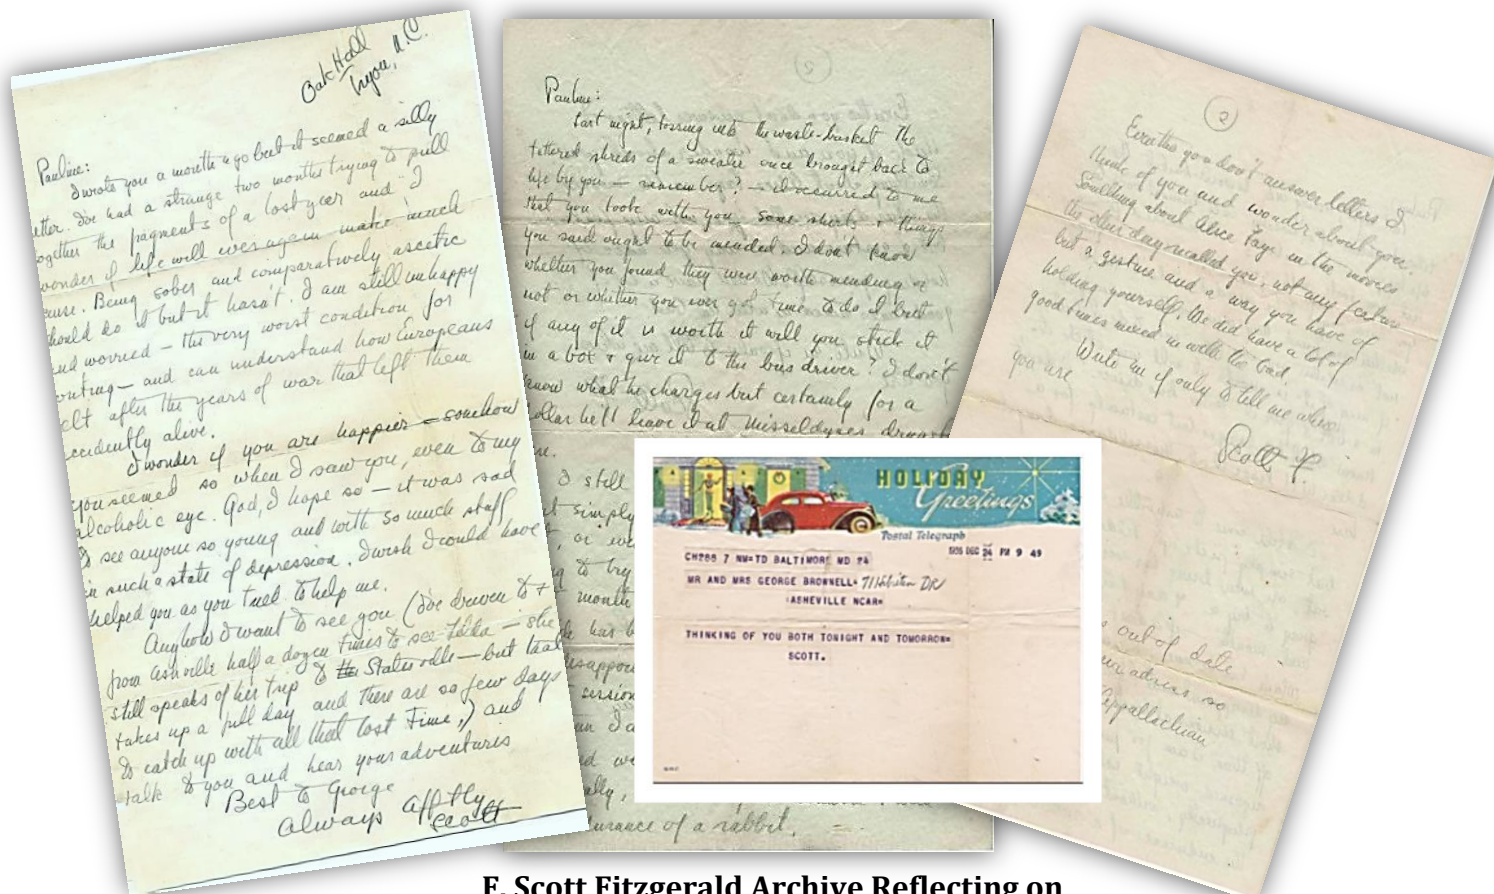 Oak Hall
Tryon, N.C.
Pauline:
I wrote you a month ago but it seemed a silly
etter. I've had a strange two months trying to pull
ogether the fragments of a lost year and I
wonder if life will ever again make much
ense. Being sober and comparatively ascetic
should do it but it hasn't. I am still unhappy
and worried — the very worst condition for
and can understand how Europeans
elt after the years of war that left them
ccidently alive.
I wonder if you are happier — somehow
you seemed so when I saw you, even to my
alcoholic eye. God, I hope so — it was sad
to see anyone so young and with so much stuff
in such a state of depression. I wish I could have
helped you as you tried to help me.
Anyhow I want to see you (I've driven to +
from Ashville half a dozen times to see Zelda — she
still speaks of her trip to Statesville — but that
takes up a full day and there are so few days
to catch up with all that lost time,) and
talk to you and hear your adventures
Best to George
Always afftly
Scott
5
Pauline:
Last night, tossing into the waste-basket the
tattered shreds of a sweater once brought back to
life by you — remember? — it occurred to me
that you took with you some shirts + things
you said ought to be mended. I don't know
whether you found they were worth mending or
not or whether you ever got time to do it but
if any of it is worth it will you stick it
in a box + give it to the bus driver? I don't
know what he charges but certainly for a
dollar he'll leave it at Misseldynes
I still
simply
, or
to try
month
has
disappoi
session
urance of a rabbit.
2
Even tho you don't answer letters I
think of you and wonder about you.
Something about Alice Faye in the movies
the other day recalled you, not any feature
but a gesture and a way you have of
holding yourself. We did have a lot of
good times mixed in with the bad.
Write me if only to tell me where
you are
Scott F.
out of date
adress so
Appallachian
HOLIDAY
Greetings
Postal Telegraph
DEC 24 PM 9 49
CH286 7 NM=TD BALTIMORE MD 24
MR AND MRS GEORGE BROWNELL= DR
ASHEVILLE NCAR=
THINKING OF YOU BOTH TONIGHT AND TOMORROW=
SCOTT.
F. Scott Fitzgerald Archive Reflecting on